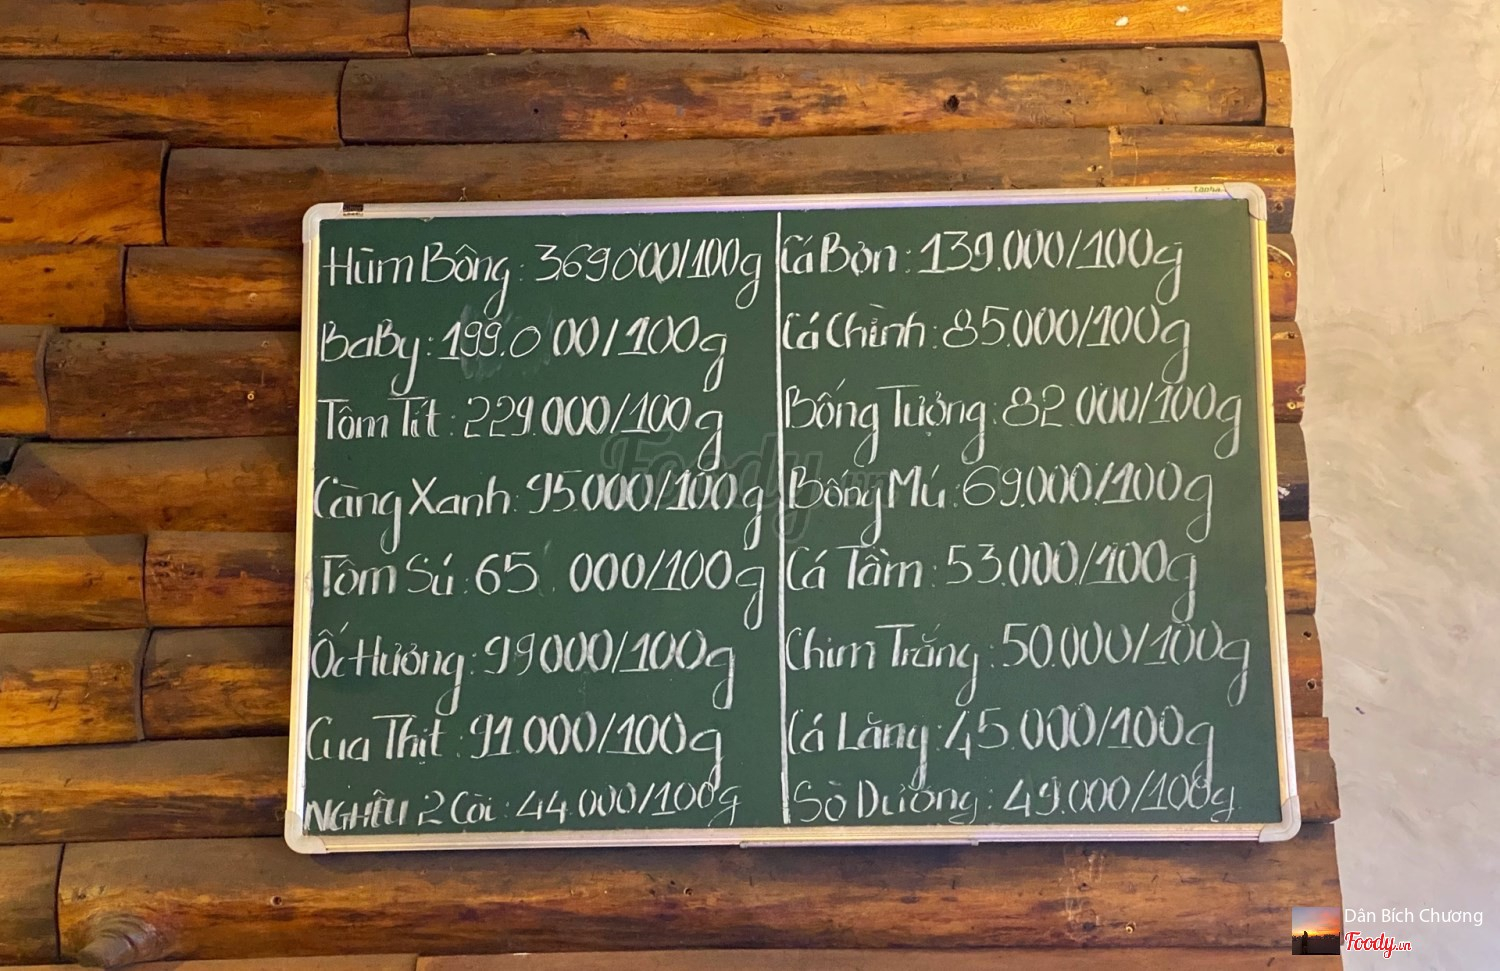 Hùm Bông: 369000/100g
BaBy: 199.000/100g
Tôm Tít: 229.000/100g
Càng Xanh: 95000/100g
Tôm Sú: 65 000/100g
Ốc Hương: 99000/100g
Cua Thịt: 91.000/100g
NGHÊU 2 Còi: 44.000/100g
Cá Bơn: 139.000/100g
Cá Chình: 85.000/100g
Bống Tượng: 82 000/100g
Bông Mú: 69.000/100g
Cá Tầm: 53.000/100g
Chim Trắng: 50.000/100g
Cá Lăng: 45.000/100g
Sò Dương: 49.000/100g
Foody.vn
Dân Bích Chương
Foody.vn